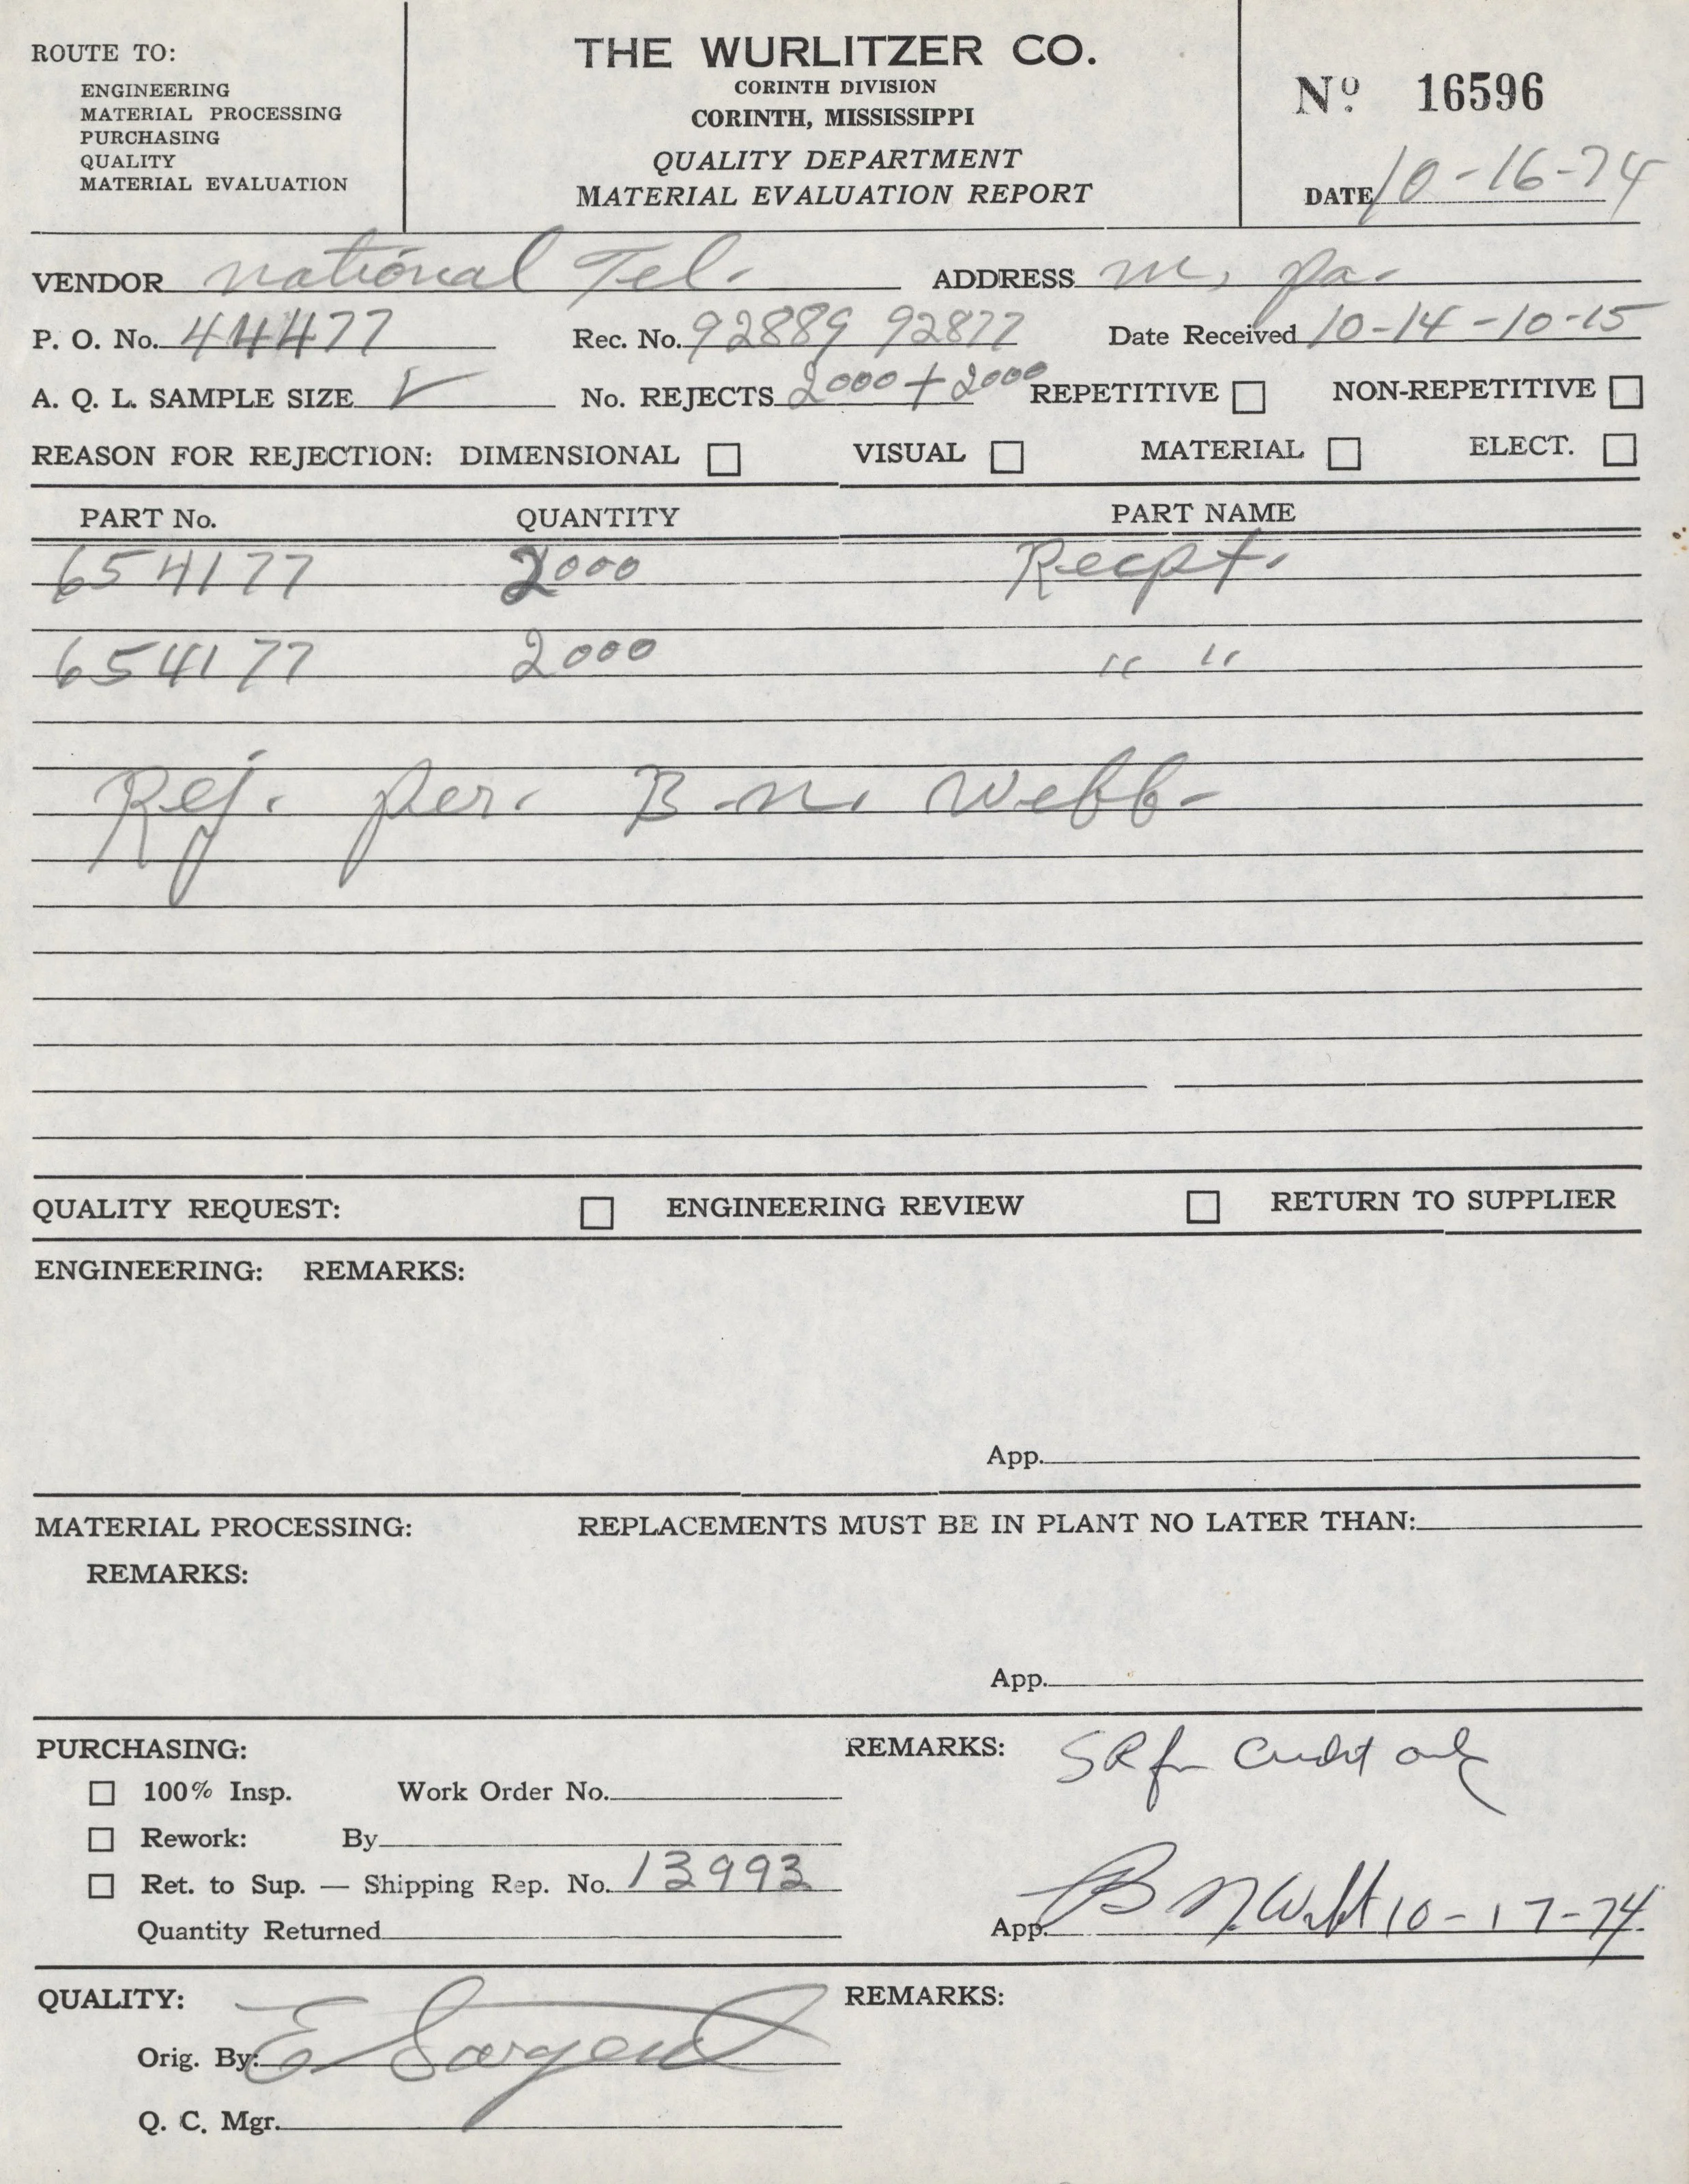 ROUTE TO:
ENGINEERING
MATERIAL PROCESSING
PURCHASING
QUALITY
MATERIAL EVALUATION
THE WURLITZER CO.
CORINTH DIVISION
CORINTH, MISSISSIPPI
QUALITY DEPARTMENT
MATERIAL EVALUATION REPORT
Nº 16596
DATE 10-16-74
VENDOR national Tel. ADDRESS m, pa.
P. O. No. 44477 Rec. No. 92889 92877 Date Received 10-14-10-15
A. Q. L. SAMPLE SIZE ✓ No. REJECTS 2000 + 2000 REPETITIVE ☐ NON-REPETITIVE ☐
REASON FOR REJECTION: DIMENSIONAL ☐ VISUAL ☐ MATERIAL ☐ ELECT. ☐
PART No. QUANTITY PART NAME
654177 2000 Recpt.
654177 2000 " "
Rej. per. B.n. Webb-
QUALITY REQUEST: ☐ ENGINEERING REVIEW ☐ RETURN TO SUPPLIER
ENGINEERING: REMARKS:
App.
MATERIAL PROCESSING: REPLACEMENTS MUST BE IN PLANT NO LATER THAN:
REMARKS:
App.
PURCHASING: REMARKS: SR for Credit only
☐ 100% Insp. Work Order No.
☐ Rework: By
☐ Ret. to Sup. — Shipping Rep. No. 13993
Quantity Returned App. B N. Webb 10-17-74
QUALITY: REMARKS:
Orig. By: E Sargent
Q. C. Mgr.